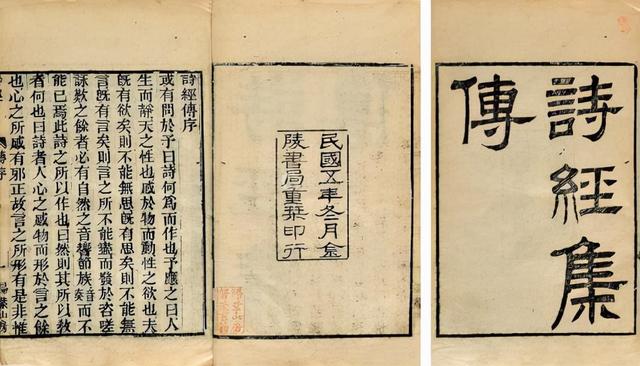 詩經集
傳
民國五年冬月金
陵書局重栞印行
詩經傳序
或有問於予曰詩何爲而作也予應之曰人
生而靜天之性也感於物而動性之欲也夫
旣有欲矣則不能無思旣有思矣則不能無
言旣有言矣則言之所不能盡而發於咨嗟
詠歎之餘者必有自然之音響節族音奏而不
能已焉此詩之所以作也曰然則其所以敎
者何也曰詩者人心之感物而形於言之餘
也心之所感有邪正故言之所形有是非惟